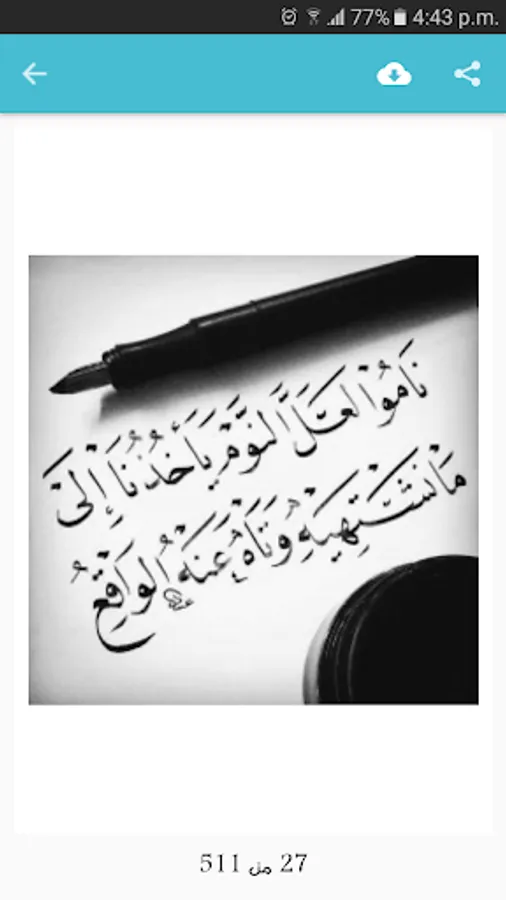 77% 4:43 p.m.
نَامُوا لَعَلَّ النَّوْمَ يَأْخُذُنَا إِلَى
مَا نَشْتَهِيهِ وَتَاهَ عَنْهُ الْوَاقِعُ
27 من 511